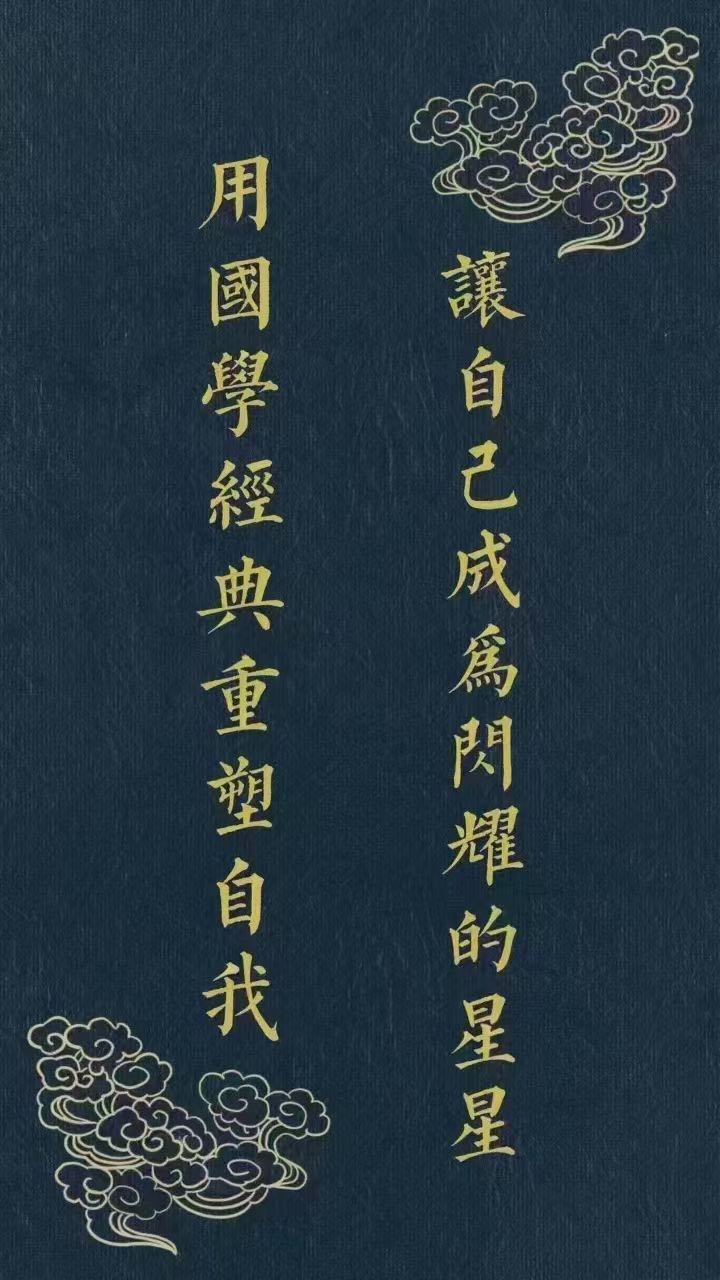 讓自己成爲閃耀的星星
用國學經典重塑自我